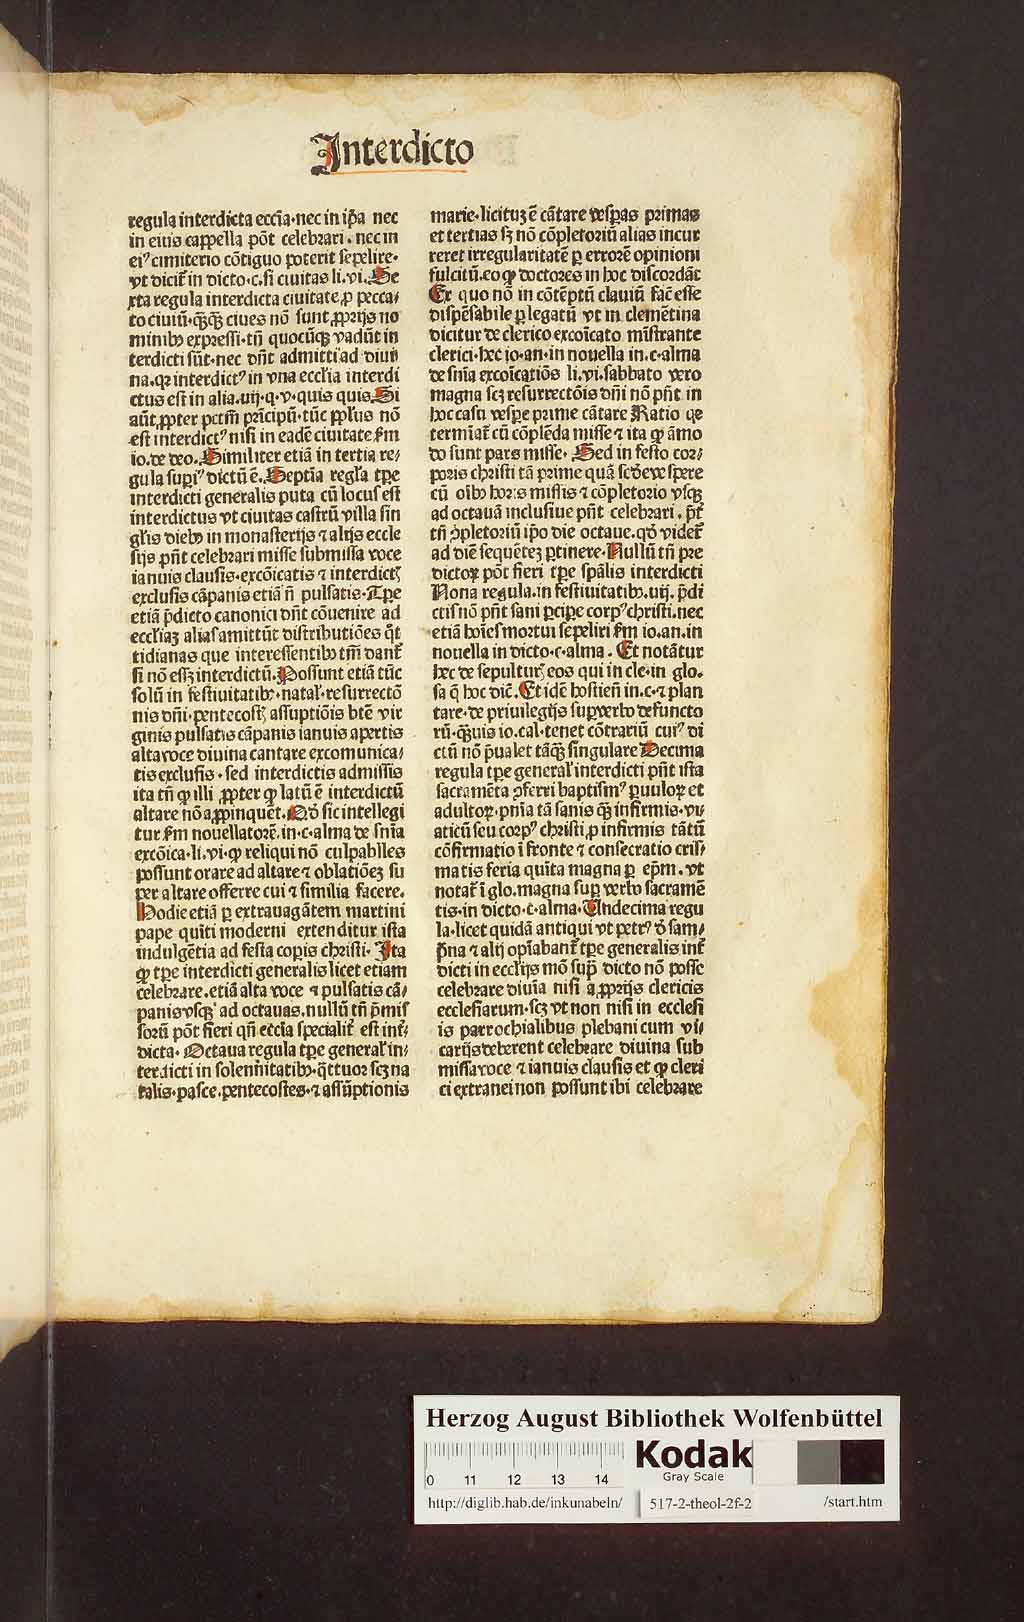 Interdicto
regula interdicta eccĩa·nec in ip̃a nec
in eius cappella põt celebrari. nec in
eiꝰ cimiterio cõtiguo poterit sepelire·
vt dicit̃ in dicto.c.si ciuitas li.vi. Se
xta regula interdicta ciuitate ꝓ pecca⸗
to ciuiũ·q̃q̃ꝫ ciues nõ sunt ꝓprijs no
minibꝫ expressi·tñ quocũqꝫ vadũt in
terdicti sũt·nec dñt admitti ad diui
na.qꝛ interdictꝰ in vna ecclia interdi
ctus est in alia.vij.q.v.quis quis. Si
aũt ꝓpter pctm̃ prĩcipũ·tũc ꝓplus nõ
est interdictꝰ nisi in eadẽ ciuitate ẜm
io.de deo. Similiter etiã in tertia re⸗
gula supiꝰ dictũ ẽ. Septĩa regla tꝑe
interdicti generalis puta cũ locus est
interdictus vt ciuitas castrũ villa sin
glis diebꝫ in monasterijs ⁊ alijs eccle
sijs pñt celebrari misse submissa voce
ianuis clausis·excõicatis ⁊ interdictꝭ
exclusis cãpanis etiã ñ pulsatis·Tꝑe
etiã p̃dicto canonici dñt cõuenire ad
eccliaꝫ alias amittũt distributiões q̃t
tidianas que interessentibꝫ tm̃ dant̃
si nõ essꝫ interdictũ. Possunt etiã tũc
solũ in festiuitatibꝫ·natal·resurrectõ
nis dñi·pentecostꝭ assuptiõis btẽ vir
ginis pulsatis cãpanis ianuis apertis
alta voce diuina cantare excomunica⸗
tis exclusis·sed interdictis admissis
ita tñ ꝙ illi ꝓpter ꝙ latũ ẽ interdictũ
altare nõ aꝓpinquẽt. Qđ sic intellegi
tur ẜm nouellatorẽ.in.c.alma de snĩa
excõica.li.vi.ꝙ reliqui nõ culpabiles
possunt orare ad altare ⁊ oblatiões su
per altare offerre cui ⁊ similia facere.
Hodie etiã ꝑ extrauagãtem martini
pape quĩti moderni extenditur ista
indulgẽtia ad festa corpis christi. Ita
ꝙ tꝑe interdicti generalis licet etiam
celebrare.etiã alta voce ⁊ pulsatis cã⸗
panis vsqꝫ ad octauas.nullũ tñ p̃mis
sorũ põt fieri qñ eccĩa specialit̃ est int̃⸗
dicta. Octaua regula tꝑe general in⸗
terdicti in solennitatibꝫ q̃ttuor scꝫ na
talis·pasce.pentecostes·⁊ assũptionis
marie·licituꝫ ẽ cãtare vesꝑas primas
et tertias sꝫ nõ cõpletoriũ alias incur
reret irregularitatẽ ꝑ errorẽ opinioni
fulcitũ.eo ꝙ doctores in hoc discordãt
Ex quo nõ in cõtẽptũ clauiũ fac̃ esse
dispẽsabile ꝑ legatũ vt in clemẽtina
dicitur de clerico excoĩcato mĩstrante
clerici·hec io·an·in nouella in.c.alma
de snĩa excoĩcatiõs li.vi.sabbato vero
magna scꝫ resurrectõis dñi nõ pñt in
hoc casu vesꝑe prime cãtare Ratio qꝛ
termiat̃ cũ cõplẽda misse ⁊ ita ꝙ ãmo
do sunt pars misse. Sed in festo cor⸗
poris christi tã prime quã scđe vespere
cũ oĩbꝫ horis missis ⁊ cõpletorio vsqꝫ
ad octauã inclusiue pñt celebrari. p̃t̃
tñ ꝯpletoriũ ip̃o die octaue.qđ videt̃
ad diẽ sequẽteꝫ ꝑtinere. Nullũ tñ pre
dictoꝝ põt fieri tꝑe spãlis interdicti
Nona regula.in festiuitatibꝫ.iiij. p̃di
ctis nõ pñt sani ꝑcipe corpꝰ christi.nec
etiã hoĩes mortui sepeliri ẜm io.an.in
nouella in dicto.c.alma. Et notãtur
hec de sepulturꝭ eos qui in cle·in glo.
sa q̃ hoc dic̃. Et idẽ hostieñ in.c.⁊ plan
tare.de priuilegijs sup verbo defuncto
rũ.q̃uis io.cal.tenet cõtrariũ cuiꝰ di
ctũ nõ p̃ualet tãq̃ꝫ singulare Decima
regula tꝑe general interdicti pñt ista
sacramẽta ꝯferri baptismꝰ ꝑuuloꝝ et
adultoꝝ·pñia tã sanis q̃ꝫ infirmis·vi⸗
aticũ seu corpꝰ christi ꝓ infirmis tãtũ
cõfirmatio ĩ fronte ⁊ consecratio cris⸗
matis feria quĩta magna ꝑ ep̃m. vt
notat̃ ĩ glo.magna sup verbo sacramẽ
tis·in dicto·c·alma. Undecima regu
la·licet quidã antiqui vt petrꝰ đ sam⸗
p̃na ⁊ alij opĩabant̃ tꝑe generalis int̃
dicti in ecclijs mõ sup̃ dicto nõ posse
celebrare diuĩa nisi a ꝓprijs clericis
ecclesiarum·scꝫ vt non nisi in ecclesi
is parrochialibus plebani cum vi⸗
carijs deberent celebrare diuina sub
missa voce ⁊ ianuis clausis et ꝙ cleri
ci extranei non possunt ibi celebrare
Herzog August Bibliothek Wolfenbüttel
Kodak
Gray Scale
0 11 12 13 14
http://diglib.hab.de/inkunabeln/ 517-2-theol-2f-2 /start.htm